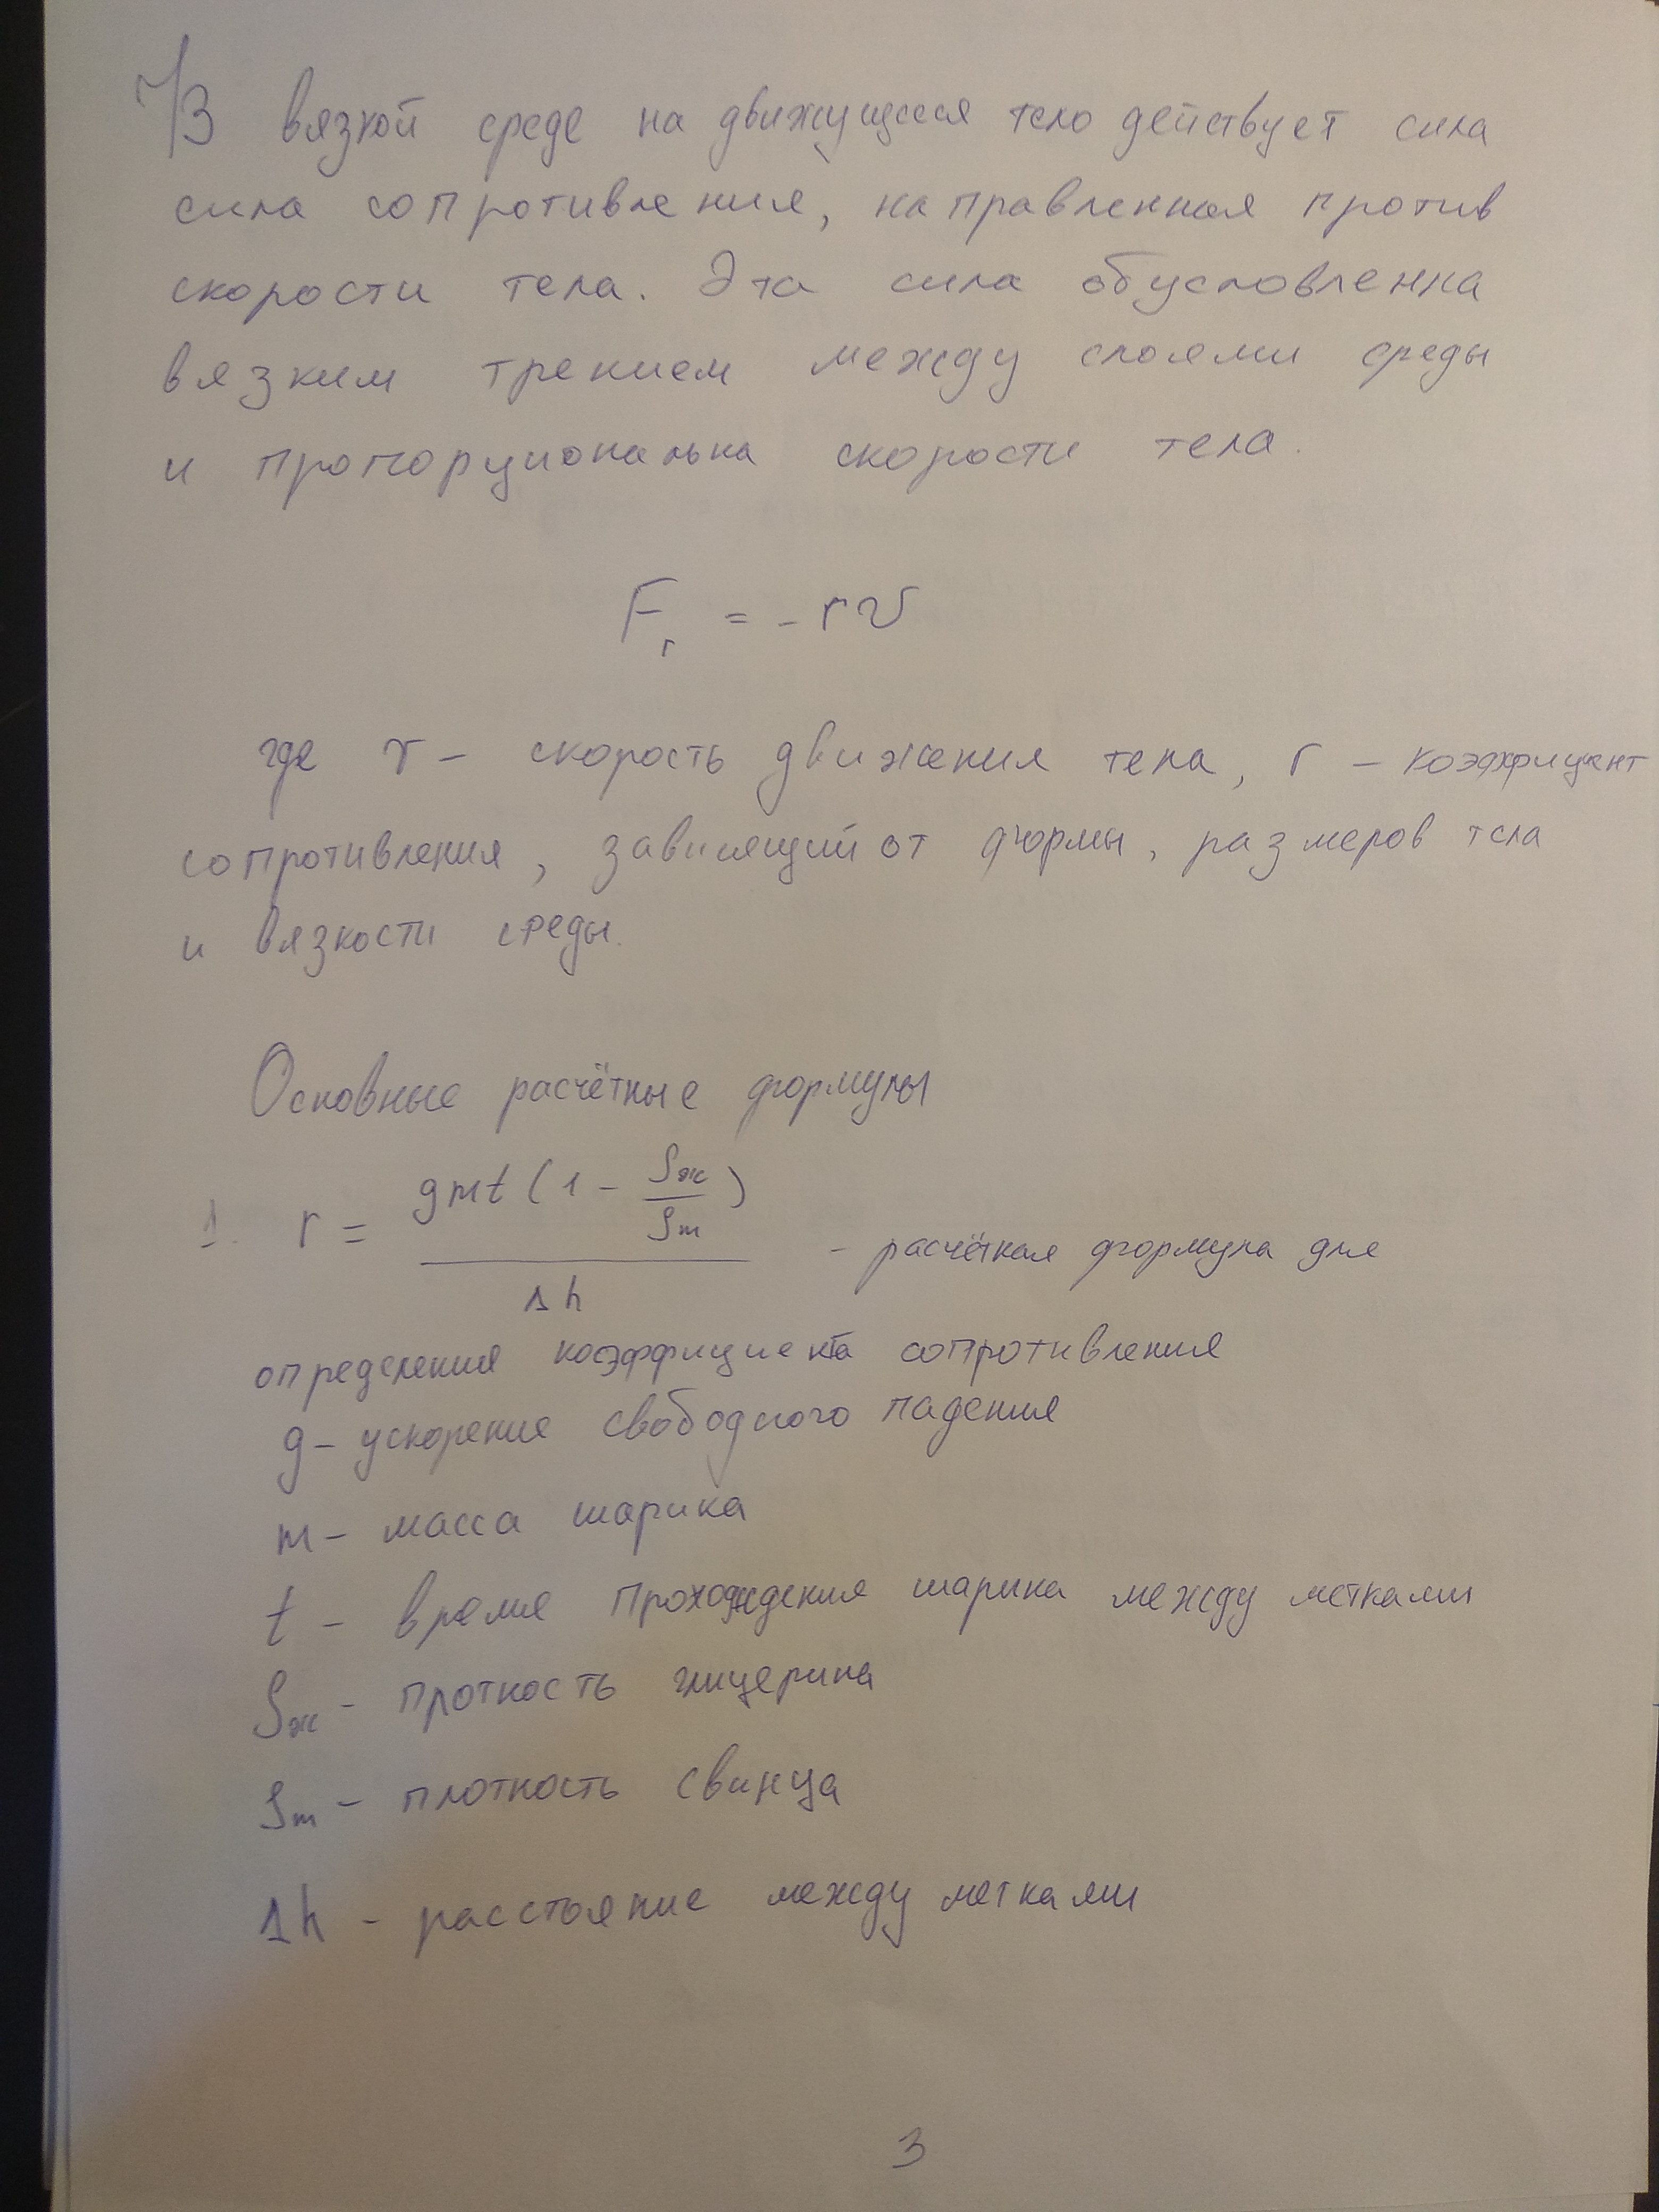 В вязкой среде на движущееся тело действует сила
сила сопротивления, направленная против
скорости тела. Эта сила обусловленна
вязким трением между слоями среды
и пропорциональна скорости тела.
Fr = -rv
где v – скорость движения тела, r – коэффицент
сопротивления, зависящий от формы, размеров тела
и вязкости среды.
Основные расчётные формулы
1. r = gmt(1 - ρж/ρт) / Δh - расчётная формула для
определения коэффициента сопротивления
g – ускорение свободного падения
m – масса шарика
t – время прохождения шарика между метками
ρж – плотность глицерина
ρт – плотность свинца
Δh – расстояние между метками
3